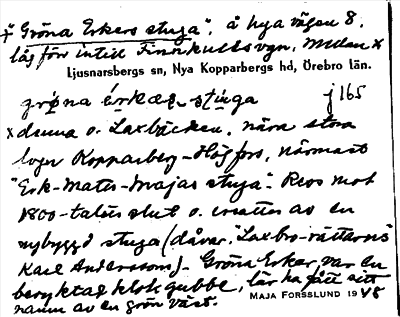 + "Gröna Erkers stuga", å nya vägen 8.
låg för intill Finnkullsvgn, mellan x
Ljusnarsbergs sn, Nya Kopparbergs hd, Örebro län.
grø̄na ærkæṣ stuga j 165
x denna o. Laxbäcken, nära stora
vägen Kopparberg–Högfors, närmast
"Erk-Mats-Majas stuga". Revs mot
1800-talets slut o. ersattes av en
nybyggd stuga (dåvar. "Laxbro-rättarns"
Karl Anderssons). Gröna Erker, var en
beryktad klok gubbe, lär ha fått sitt
namn av en grön väst.
MAJA FORSSLUND 1948